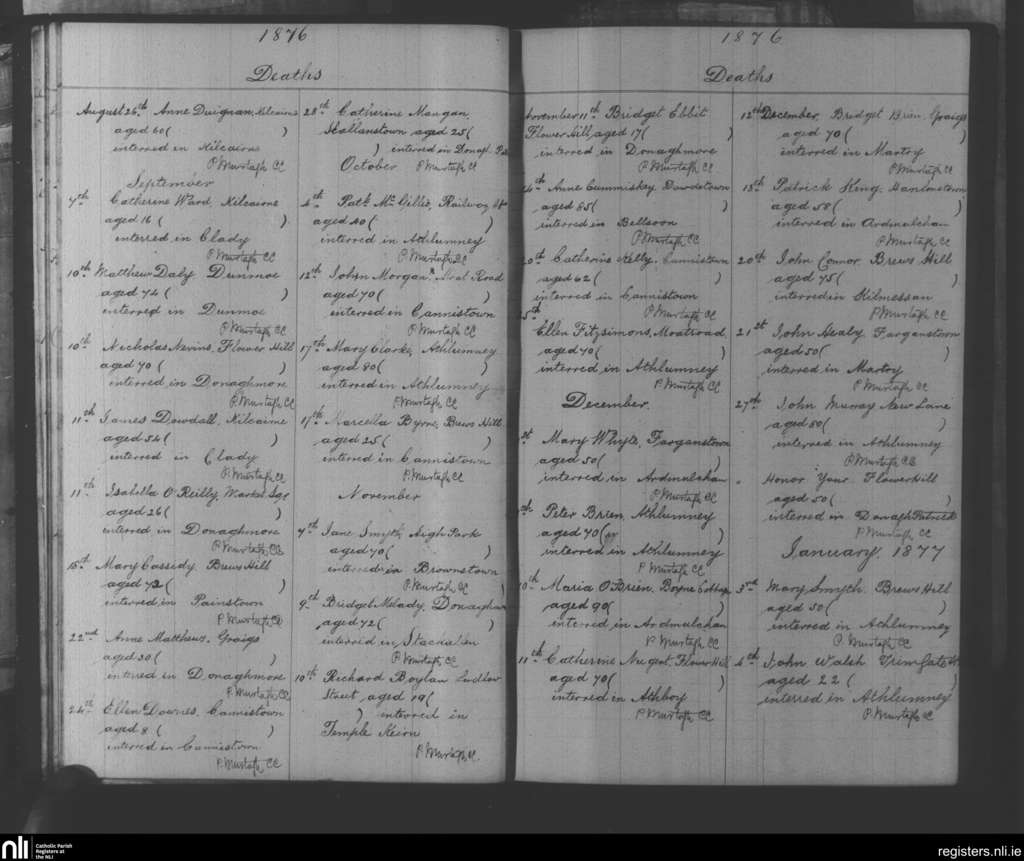 1876
Deaths
August 26th Anne Duignam, Kilcairne
aged 60 ( )
interred in Kilcairne
P Murtagh CC
September
7th Catherine Ward, Kilcairne
aged 16 ( )
interred in Clady
P Murtagh CC
10th Matthew Daly Dunmoe
aged 74 ( )
interred in Dunmoe
P Murtagh CC
10th Nickholas Nevins, Flower Hill
aged 70 ( )
interred in Donaghmore
P Murtagh CC
11th James Dowdall, Kilcairne
aged 54 ( )
interred in Clady
P. Murtagh CC
11th Isabella O'Reilly, Market Sqr
aged 26 ( )
interred in Donaghmore
P Murtagh CC
15th Mary Cassidy Brews Hill
aged 72 ( )
interred in Painstown
P Murtagh CC
22nd Anne Matthews, Graigs
aged 30 ( )
interred in Donaghmore
P Murtagh CC
24th Ellen Downes, Cannistown
aged 8 ( )
interred in Cannistown
P Murtagh CC
28th Catherine Mangan
aged 25 (
) interred in
October P Murtagh CC
4th Patk Mc Gillic, Railway
aged 40 ( )
interred in Athlumney
P Murtagh CC
12th John Morgan, Moat Road
aged 70 ( )
interred in Cannistown
P Murtagh CC
17th Mary Clarke, Athlumney
aged 80 ( )
interred in Athlumney
P Murtagh CC
17th Marcella Byrne, Brews Hill
aged 25 ( )
interred in Cannistown
P Murtagh CC
November
7th Jane Smyth, High Park
aged 70 ( )
interred in Brownstown
P Murtagh CC
9th Bridget Melady, Donaghmore
aged 72 ( )
interred in Stackallen
P Murtagh CC
10th Richard Boylan Ludlow
Street, aged 19 (
) interred in
Temple Keirn
P Murtagh CC
1876
Deaths
November 11th Bridget Ebbit
Flower hill, aged 17 ( )
interred in Donaghmore
P Murtagh CC
14th Anne Cummiskey, Dowdstown
aged 85 ( )
interred in Bellsoon
P Murtagh CC
20th Catherine Kelly, Cannistown
aged 62 ( )
interred in Cannistown
P Murtagh CC
25th
Ellen Fitzsimons, Moatroad,
aged 70 ( )
interred in Athlumney
P Murtagh CC
December.
Mary Whyte, Farganstown
aged 50 ( )
interred in Ardmulchan
P Murtagh CC
Peter Brien, Athlumney
aged 70 ( )
interred in Athlumney
P Murtagh CC
10th Maria O'Brien, Boyne Cottage
aged 90 ( )
interred in Ardmulchan
P Murtagh CC
11th Catherine Nugent, Flower Hill
aged 70 ( )
interred in Athboy
P Murtagh CC
12th December, Bridget Brien, Graigs
aged 70 ( )
interred in Martry
P Murtagh CC
18th Patrick King, Hanlonstown
aged 58 ( )
interred in Ardmulchan
P Murtagh CC
20th John Connor Brews Hill
aged 75 ( )
interred in Kilmessan
P Murtagh CC
21st John Healy, Farganstown
aged 50 ( )
interred in Martry
P Murtagh CC
27th John Murray New Lane
aged 80 ( )
interred in Athlumney
P Murtagh CC
" Honor Your Flower Hill
aged 50 ( )
interred in Donagh Patrick
P Murtagh CC
January, 1877
3rd Mary Smyth, Brews Hill
aged 50 ( )
interred in Athlumney
P. Murtagh CC
4th John Walsh Trim Gate
aged 22 ( )
interred in Athlumney
P. Murtagh CC
nli
Catholic Parish
Registers at
the NLI
registers.nli.ie